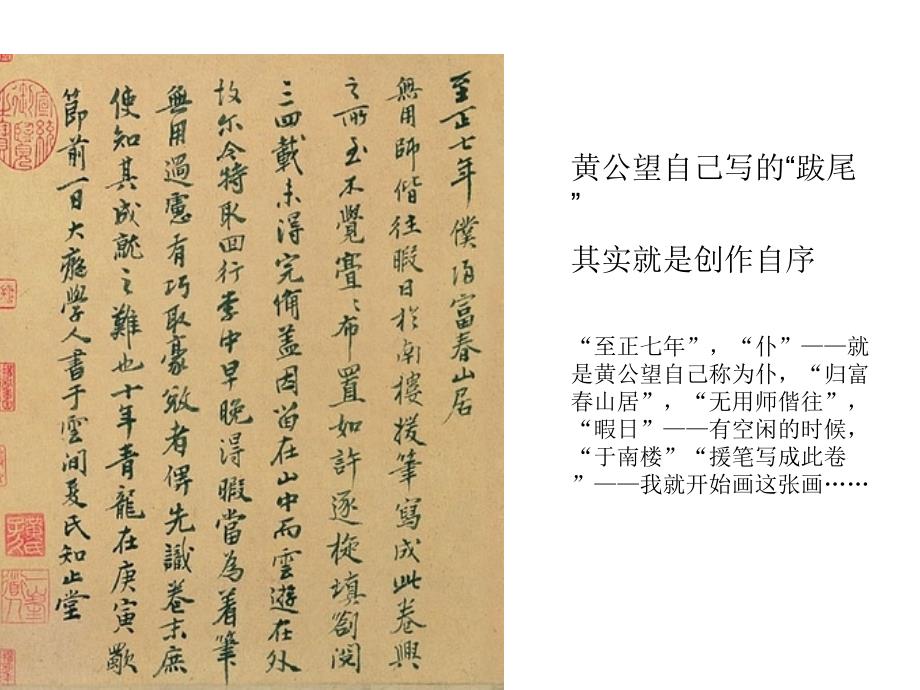 至正七年僕歸富春山居
無用師偕往暇日於南樓援筆寫成此卷興
之所至不覺亹〻布置如許逐旋填劄閱
三四載未得完備盖因留在山中而雲遊在外
故尔今特取回行李中早晚得暇當為着筆
無用過慮有巧取豪敓者俾先識卷末庶
使知其成就之難也十年青龍在庚寅歜
節前一日大癡學人書于雲間夏氏知止堂
黄公望自己写的“跋尾
”
其实就是创作自序
“至正七年”，“仆”——就
是黄公望自己称为仆，“归富
春山居”，“无用师偕往”，
“暇日”——有空闲的时候，
“于南楼”“援笔写成此卷
”——我就开始画这张画……